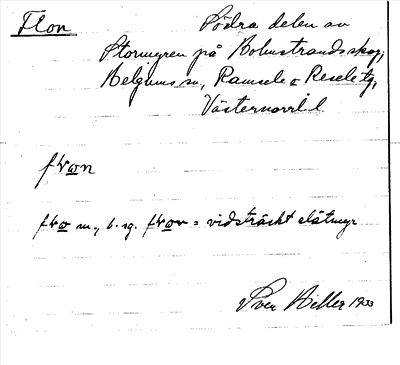 Flon
Södra delen av
Stormyren på Holmstrandsskog,
Helgums sn, Ramsele o Resele tg,
Västernorrl. l.
flωn
flω m., b. sg. flωn = vidsträckt slåtmyr
1933